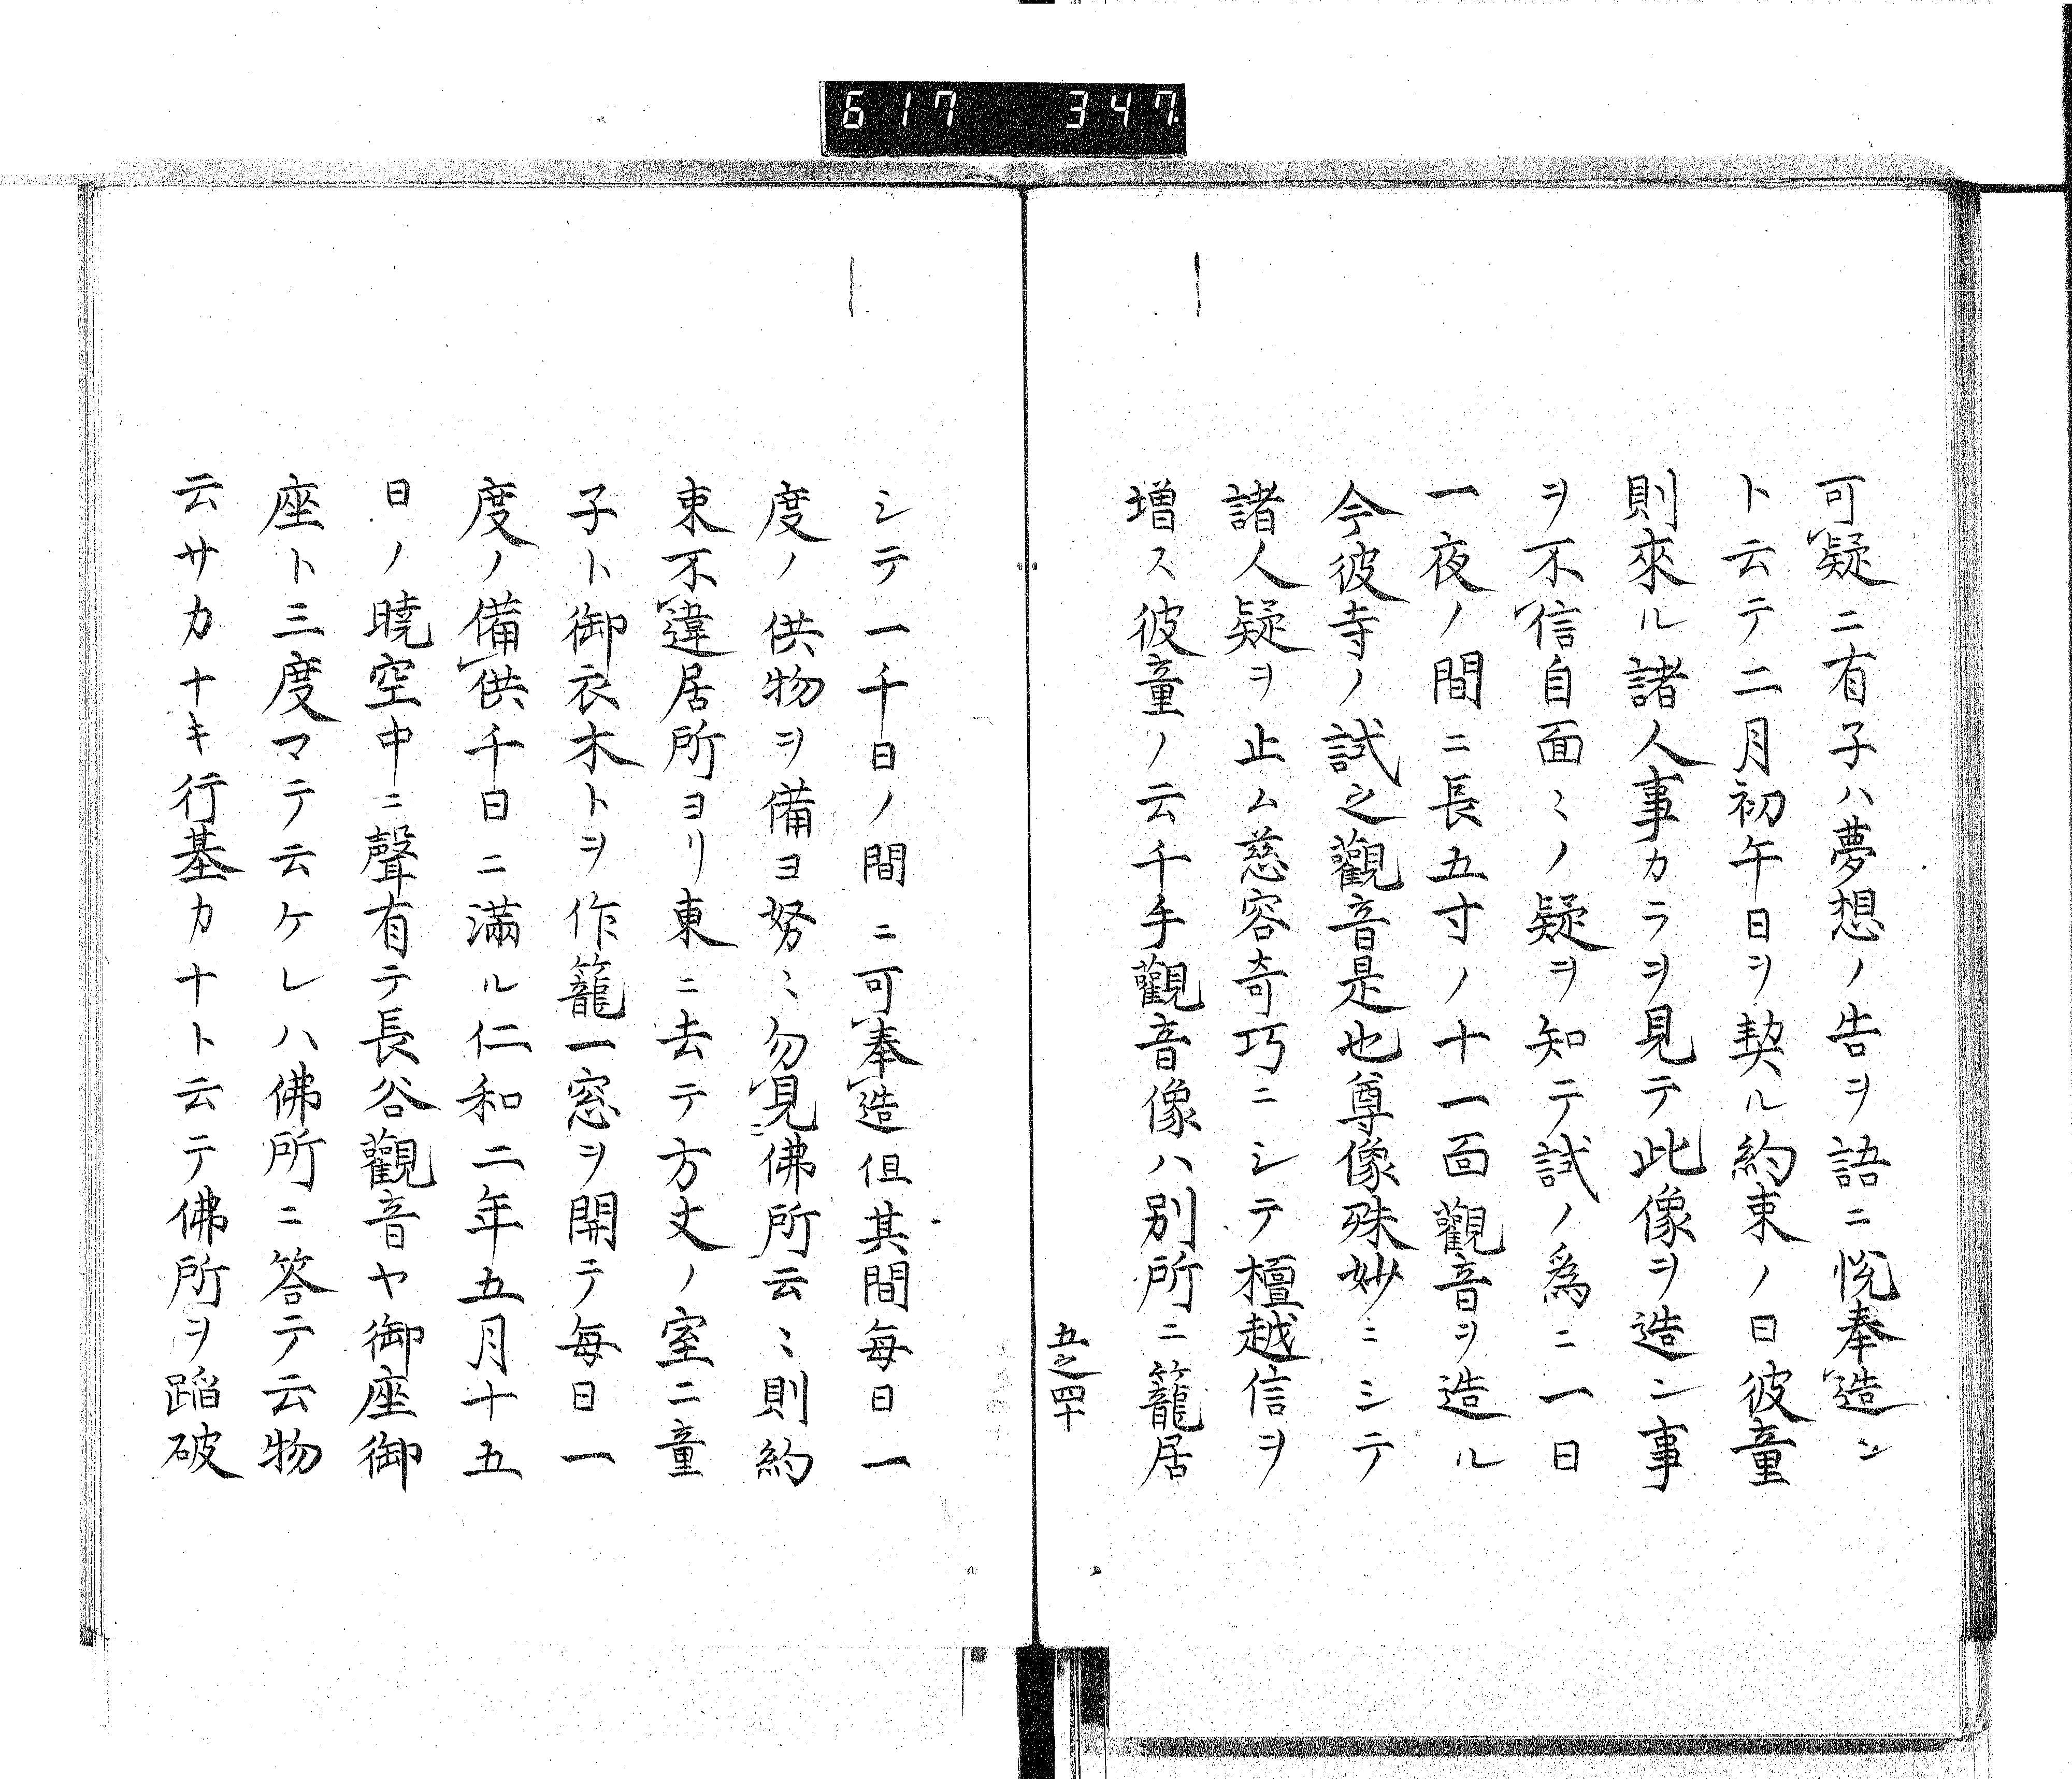 617 347.
可疑ニ有子ハ夢想ノ告ヲ語ニ悦奉造ン
ト云テ二月初午日ヲ契ル約束ノ日彼童
則來ル諸人事カラヲ見テ此像ヲ造ン事
ヲ不信自面〻ノ疑ヲ知テ試ノ爲ニ一日
一夜ノ間ニ長五寸ノ十一面觀音ヲ造ル
今彼寺ノ試之觀音是也尊像殊妙ニシテ
諸人疑ヲ止ム慈容奇巧ニシテ檀越信ヲ
増ス彼童ノ云千手觀音像ハ別所ニ籠居
五之四十
シテ一千日ノ間ニ可奉造但其間毎日一
度ノ供物ヲ備ヨ努〻勿見佛所云〻則約
束不違居所ヨリ東ニ去テ方丈ノ室ニ童
子ト御衣木トヲ作籠一窓ヲ開テ毎日一
度ノ備供千日ニ滿ル仁和二年五月十五
日ノ曉空中ニ聲有テ長谷觀音ヤ御座御
座ト三度マテ云ケレハ佛所ニ答テ云物
云サカナキ行基カナト云テ佛所ヲ蹈破